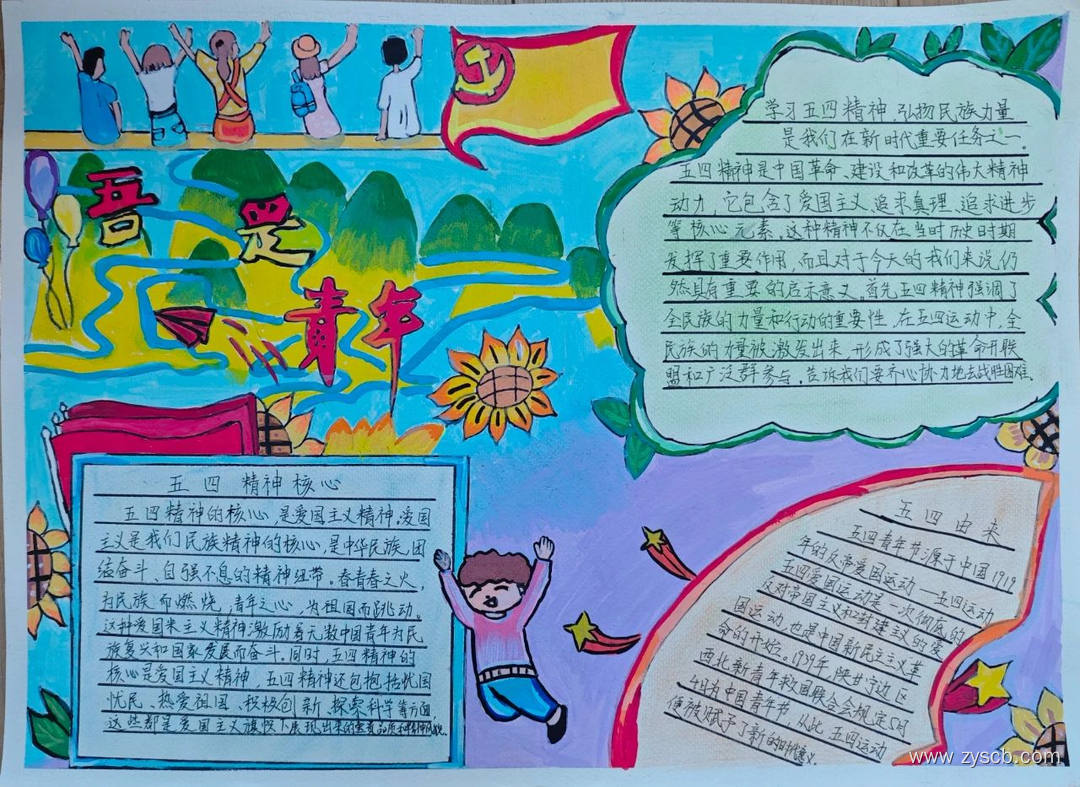 吾是
青年
学习五四精神,弘扬民族力量
是我们在新时代重要任务之一。
五四精神是中国革命、建设和改革的伟大精神
动力,它包含了爱国主义、追求真理、追求进步
等核心元素。这种精神不仅在当时历史时期
发挥了重要作用,而且对于今天的我们来说,仍
然具有重要的启示意义。首先五四精神强调了
全民族的力量和行动的重要性。在五四运动中,全
民族的力量被激发出来,形成了强大的革命开联
盟和广泛群参与。告诉我们要齐心协力地去战胜困难。
五四精神核心
五四精神的核心,是爱国主义精神。爱国
主义是我们民族精神的核心,是中华民族团
结奋斗、自强不息的精神纽带。春青春之火,
为民族而燃烧,青年之心,为祖国而跳动。
这种爱国来主义精神激励着无数中国青年为民
族复兴和国家发展而奋斗。同时,五四精神的
核心是爱国主义精神,五四精神还包抱括忧国
忧民、热爱祖国、积极创新、探索科学等方面
这些都是爱国主义旗帜下展现出来的
五四由来
五四青年节源于中国1919
年的反帝爱国运动——五四运动
五四爱国运动是一次彻底的
反对帝国主义和封建主义的爱
国运动,也是中国新民主主义革
命的开始。1939年,陕甘宁边区
西北新青年救国联合会规定5月
4日为中国青年节,从此,五四运动
便被赋予了新的
www.zyscb.com